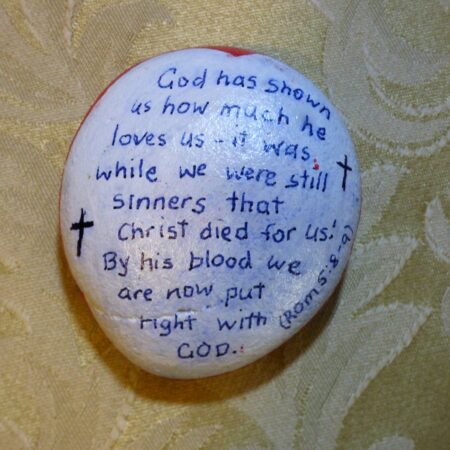 God has shown
us how much he
loves us - it was
while we were still
sinners that
Christ died for us!
By his blood we
are now put
right with
GOD.
(Rom 5:8,9)